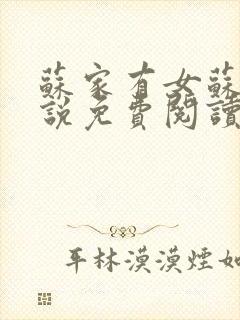 蘇家有女蘇
說免費閱讀
平林漠漠煙如